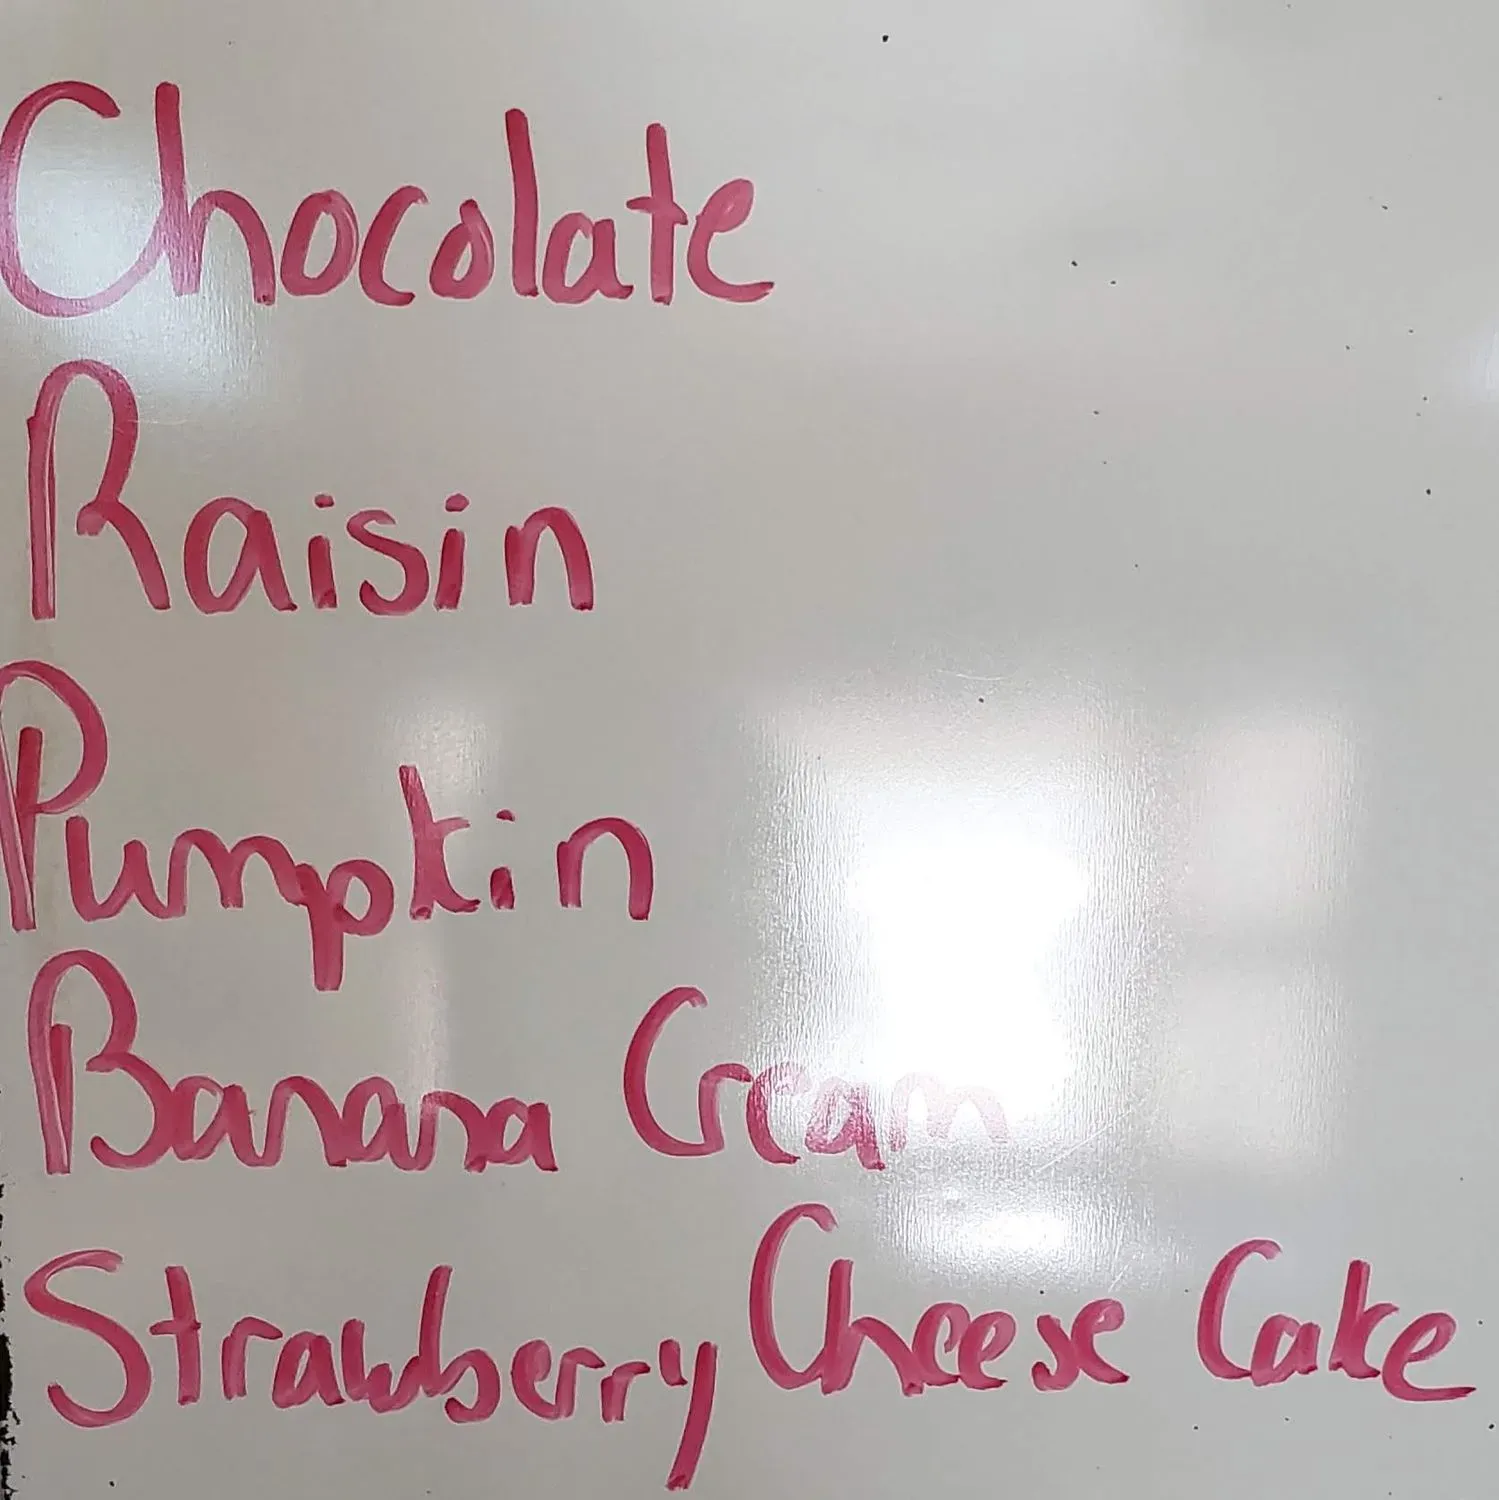 Chocolate
Raisin
Pumpkin
Banana Cream
Strawberry Cheese Cake